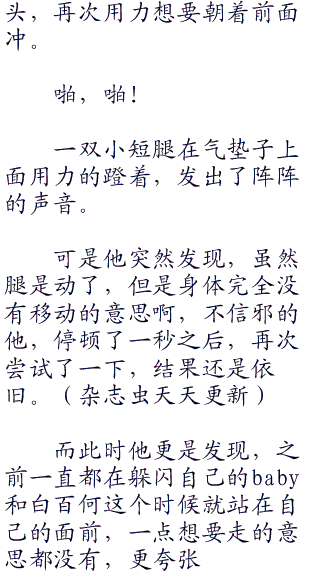 头，再次用力想要朝着前面
冲。
啪，啪！
一双小短腿在气垫子上
面用力的蹬着，发出了阵阵
的声音。
可是他突然发现，虽然
腿是动了，但是身体完全没
有移动的意思啊，不信邪的
他，停顿了一秒之后，再次
尝试了一下，结果还是依
旧。（杂志虫天天更新）
而此时他更是发现，之
前一直都在躲闪自己的baby
和白百何这个时候就站在自
己的面前，一点想要走的意
思都没有，更夸张